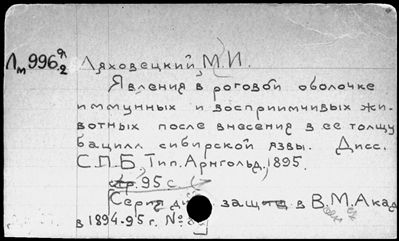 Лм 996 я/2 Ляховецкий, М.И.
Явления в роговой оболочке
иммунных и восприимчивых жи-
вотных после внесения в ее толщу
бацилл сибирской язвы. Дисс.
С.П.Б., Тип. Арнгольд, 1895.
95 с.
Серия защит в В.М. Акад
в 1894-95 г. №